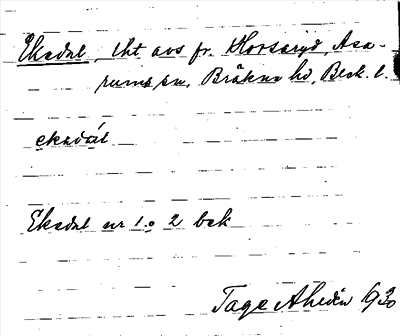 Ekedal, tht avs fr. Horsaryd, Asa-
rums sn. Bräkne hd, Blek. l.
ekadal
Ekedal nr 1 o 2 bek
Tage Ahldén 1930